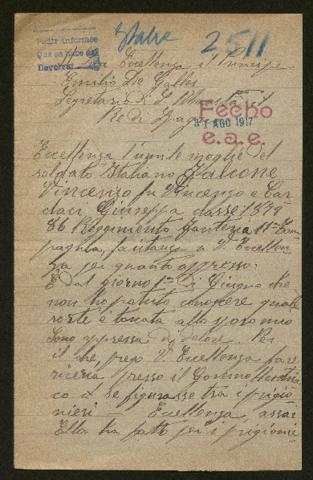 Pedir informes
Italie
2511
Devolver
Eccellenza il Principe
Emilio De Cottes
Segretario di S. M. il
Re di Spagna
Fecho
31 AGO 1917
e.a.e.
Eccellenza l'umile moglie del
soldato Italiano Falcone
Vincenzo fu Vincenzo e Car-
daci Giuseppa classe 1879
86 Reggimento fanteria 11ª Com
paghia, fa istanza a V. Eccellen-
za per quanto appresso.
È dal giorno 1º di Giugno che
non ho potuto conoscere quale
sorte è toccata allo sposo mio
sono oppressa di dolore. Per
il che, prego V. Eccellenza fare
ricerca presso il Governo Austria
co se figurasse tra i prigio
nieri — Eccellenza, assai
Ella ha fatto per i prigionieri